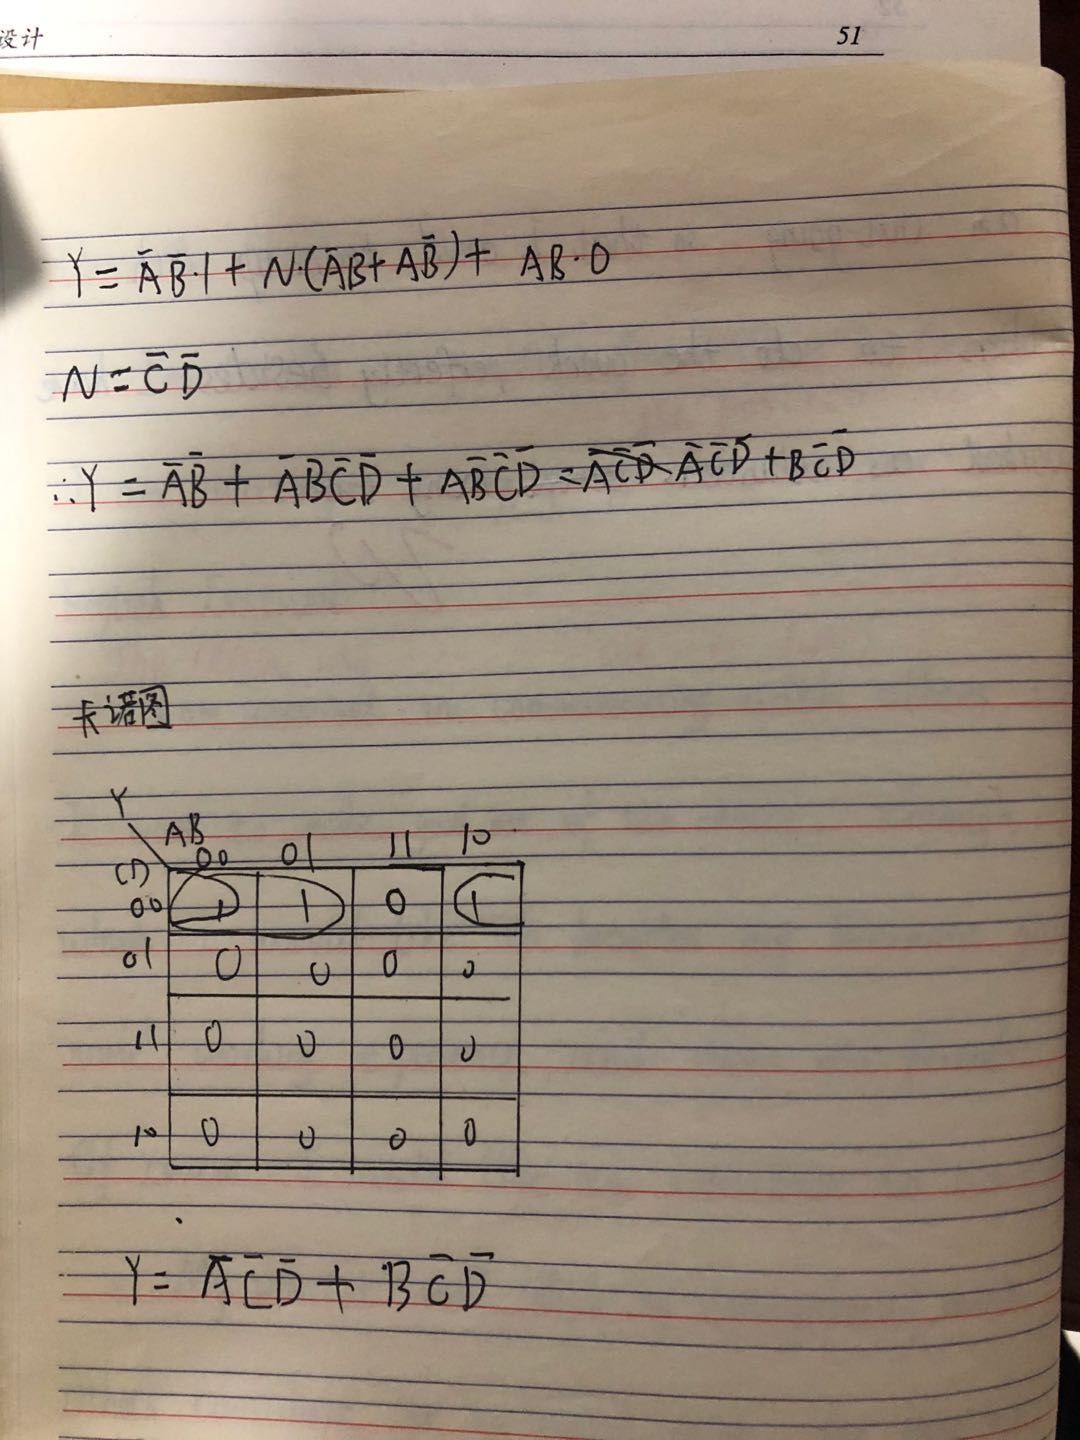 设计 51
Y = A̅B̅·1 + N·(A̅B + AB̅) + AB·0
N = C̅D̅
∴Y = A̅B̅ + A̅BC̅D̅ + AB̅C̅D̅ = A̅C̅D̅ + BC̅D̅
卡诺图
Y
AB
CD 00 01 11 10
00 1 1 0 1
01 0 0 0 0
11 0 0 0 0
10 0 0 0 0
Y = A̅C̅D̅ + BC̅D̅